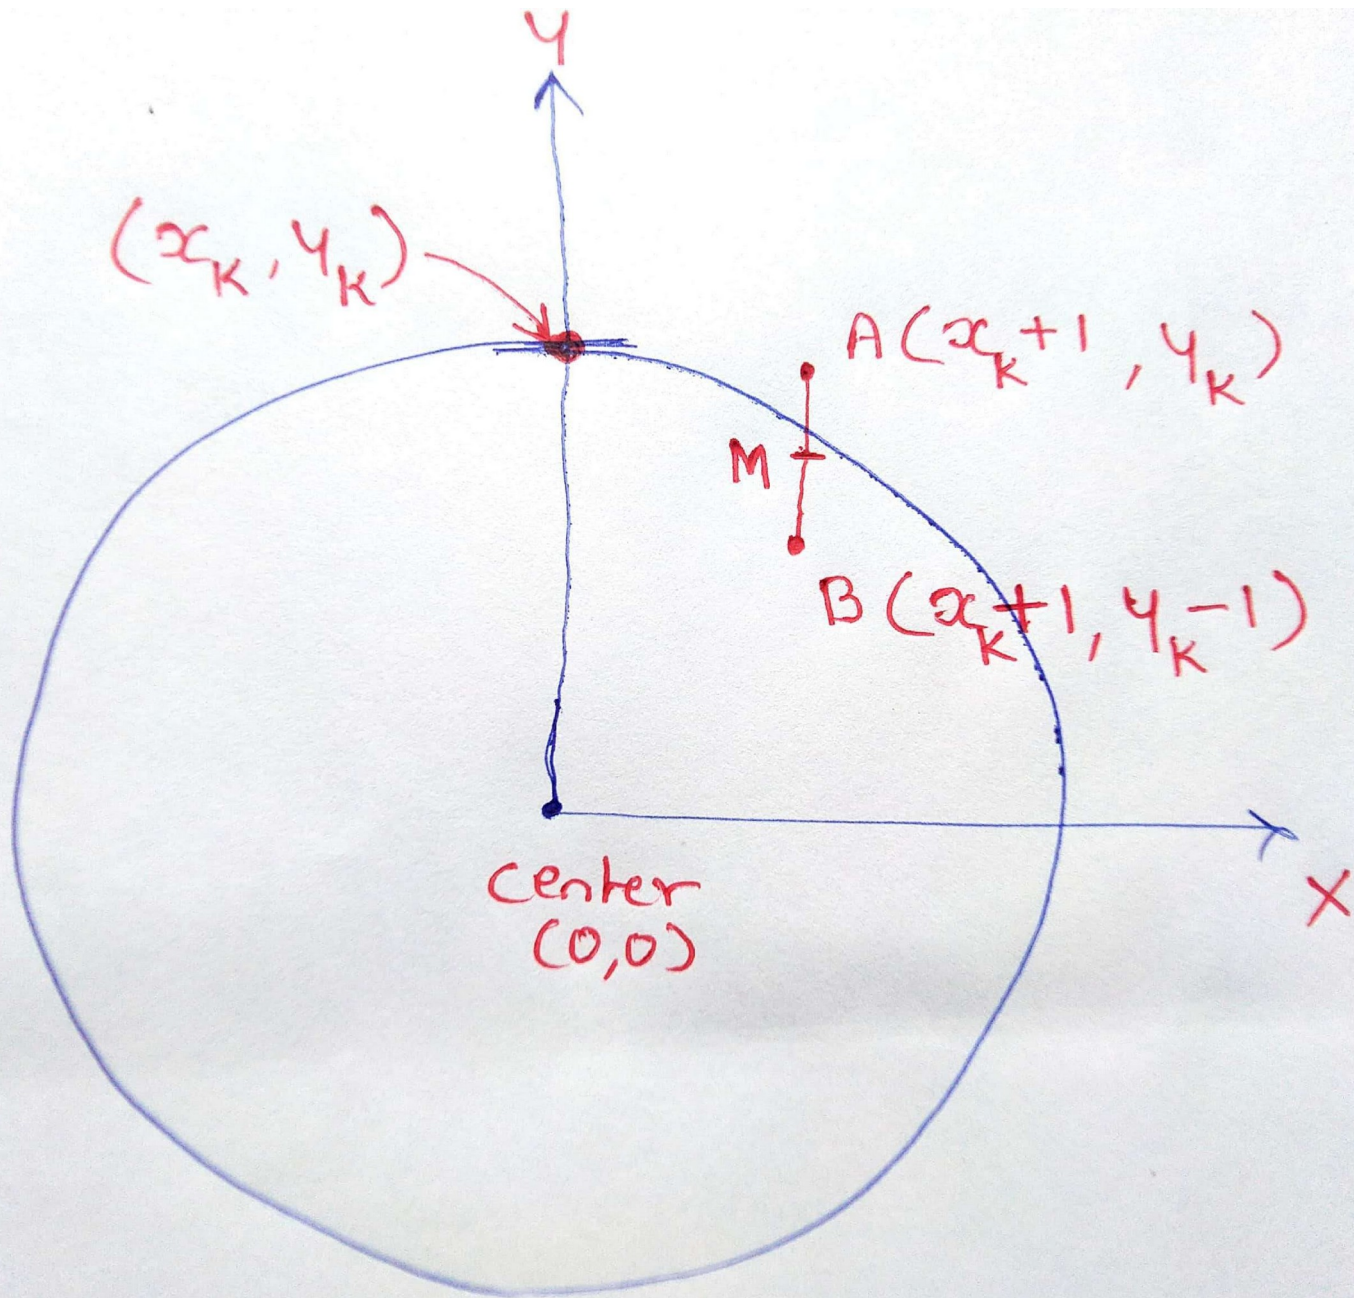 Y
(x_K, y_K)
A(x_K+1, y_K)
M
B(x_K+1, y_K-1)
center
(0,0)
X